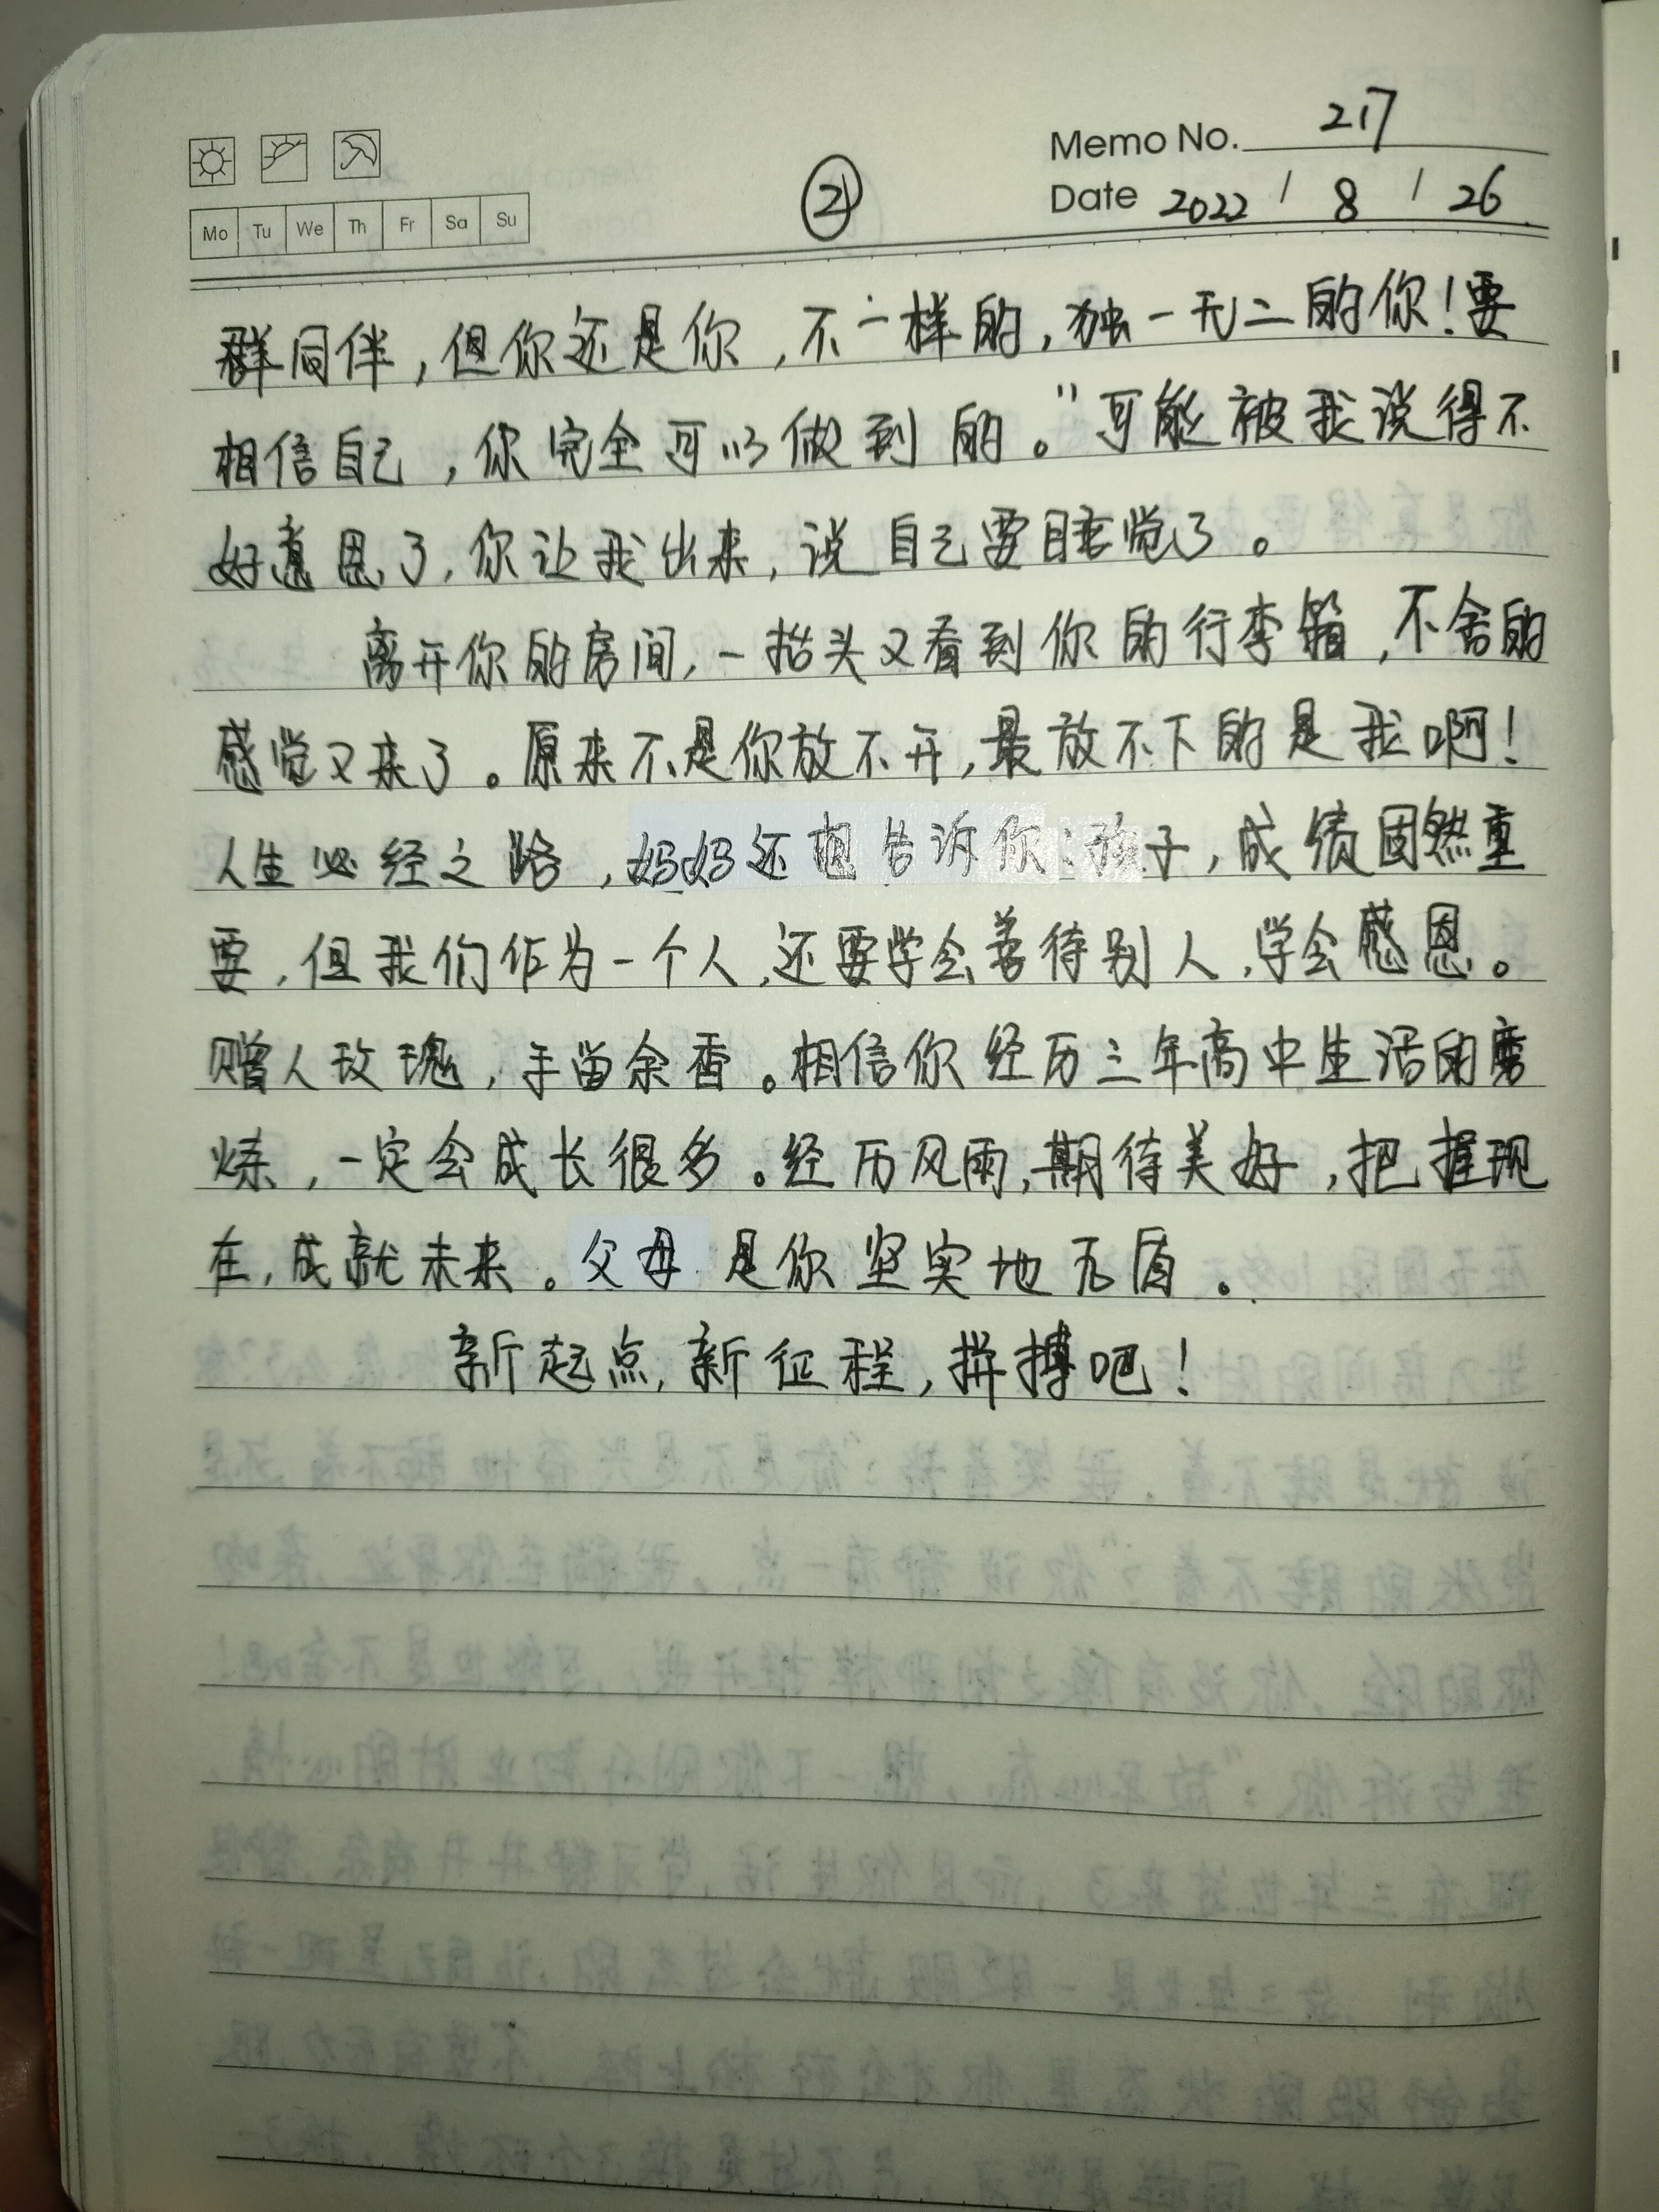 Memo No. 217
②
Date 2022 / 8 / 26
Mo Tu We Th Fr Sa Su
群同伴，但你还是你，不一样的，独一无二的你！要
相信自己，你完全可以做到的。"可能被我说得不
好意思了，你让我出来，说自己要睡觉了。
离开你的房间，一抬头又看到你的行李箱，不舍的
感觉又来了。原来不是你放不开，最放不下的是我啊！
人生必经之路，妈妈还想告诉你：孩子，成绩固然重
要，但我们作为一个人，还要学会善待别人，学会感恩。
赠人玫瑰，手留余香。相信你经历三年高中生活的磨
炼，一定会成长很多。经历风雨，期待美好，把握现
在，成就未来。父母是你坚实地后盾。
新起点，新征程，拼搏吧！